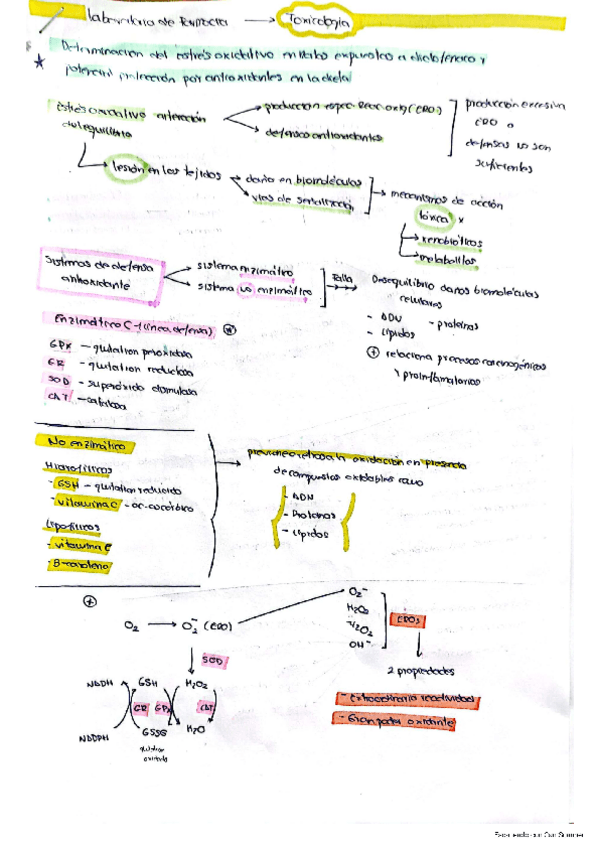 Laboratorio de Farmacia → Toxicología
Determinación del estrés oxidativo en ratas expuestas a diclofenaco y
potencial protección por antioxidantes en la dieta
Estrés oxidativo alteración
del equilibrio
producción espec. Reac. oxig (ERO)
defensas antioxidantes
producción excesiva
ERO o
defensas no son
suficientes
lesión en los tejidos
daño en biomoléculas
vías de señalización
mecanismos de acción
tóxica x
xenobióticos
metabolitos
Sistemas de defensa
antioxidante
sistema enzimático
sistema no enzimático
Falla
Desequilibrio daños biomoléculas
celulares
- ADN
- proteínas
- Lípidos
+ relaciona procesos carcinogénicos
y proinflamatorios
Enzimático (-1 línea defensa)
GPX - glutation peroxidasa
GR - glutation reductasa
SOD - superóxido dismutasa
CAT - catalasa
No enzimático
Hidrofílicos
- GSH - glutation reducido
- vitamina C - ac. ascórbico
Lipofílicos
- vitamina E
- B-caroteno
previene o retrasa la oxidación en presencia
de compuestos oxidables como
- ADN
- Proteínas
- Lípidos
+
O2 → O2⁻ (ERO)
O2⁻
H2O2
OH⁻
EROs
2 propiedades
- Extraordinaria reactividad
- Gran poder oxidante
SOD
NADH GSH H2O2
GR GPX CAT
NADPH GSSG H2O
glutation
oxidado
Escaneado con CamScanner